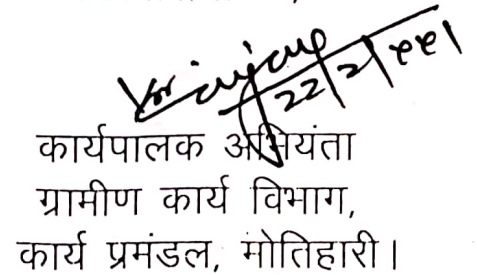 22/2/
कार्यपालक अभियंता
ग्रामीण कार्य विभाग,
कार्य प्रमंडल, मोतिहारी।